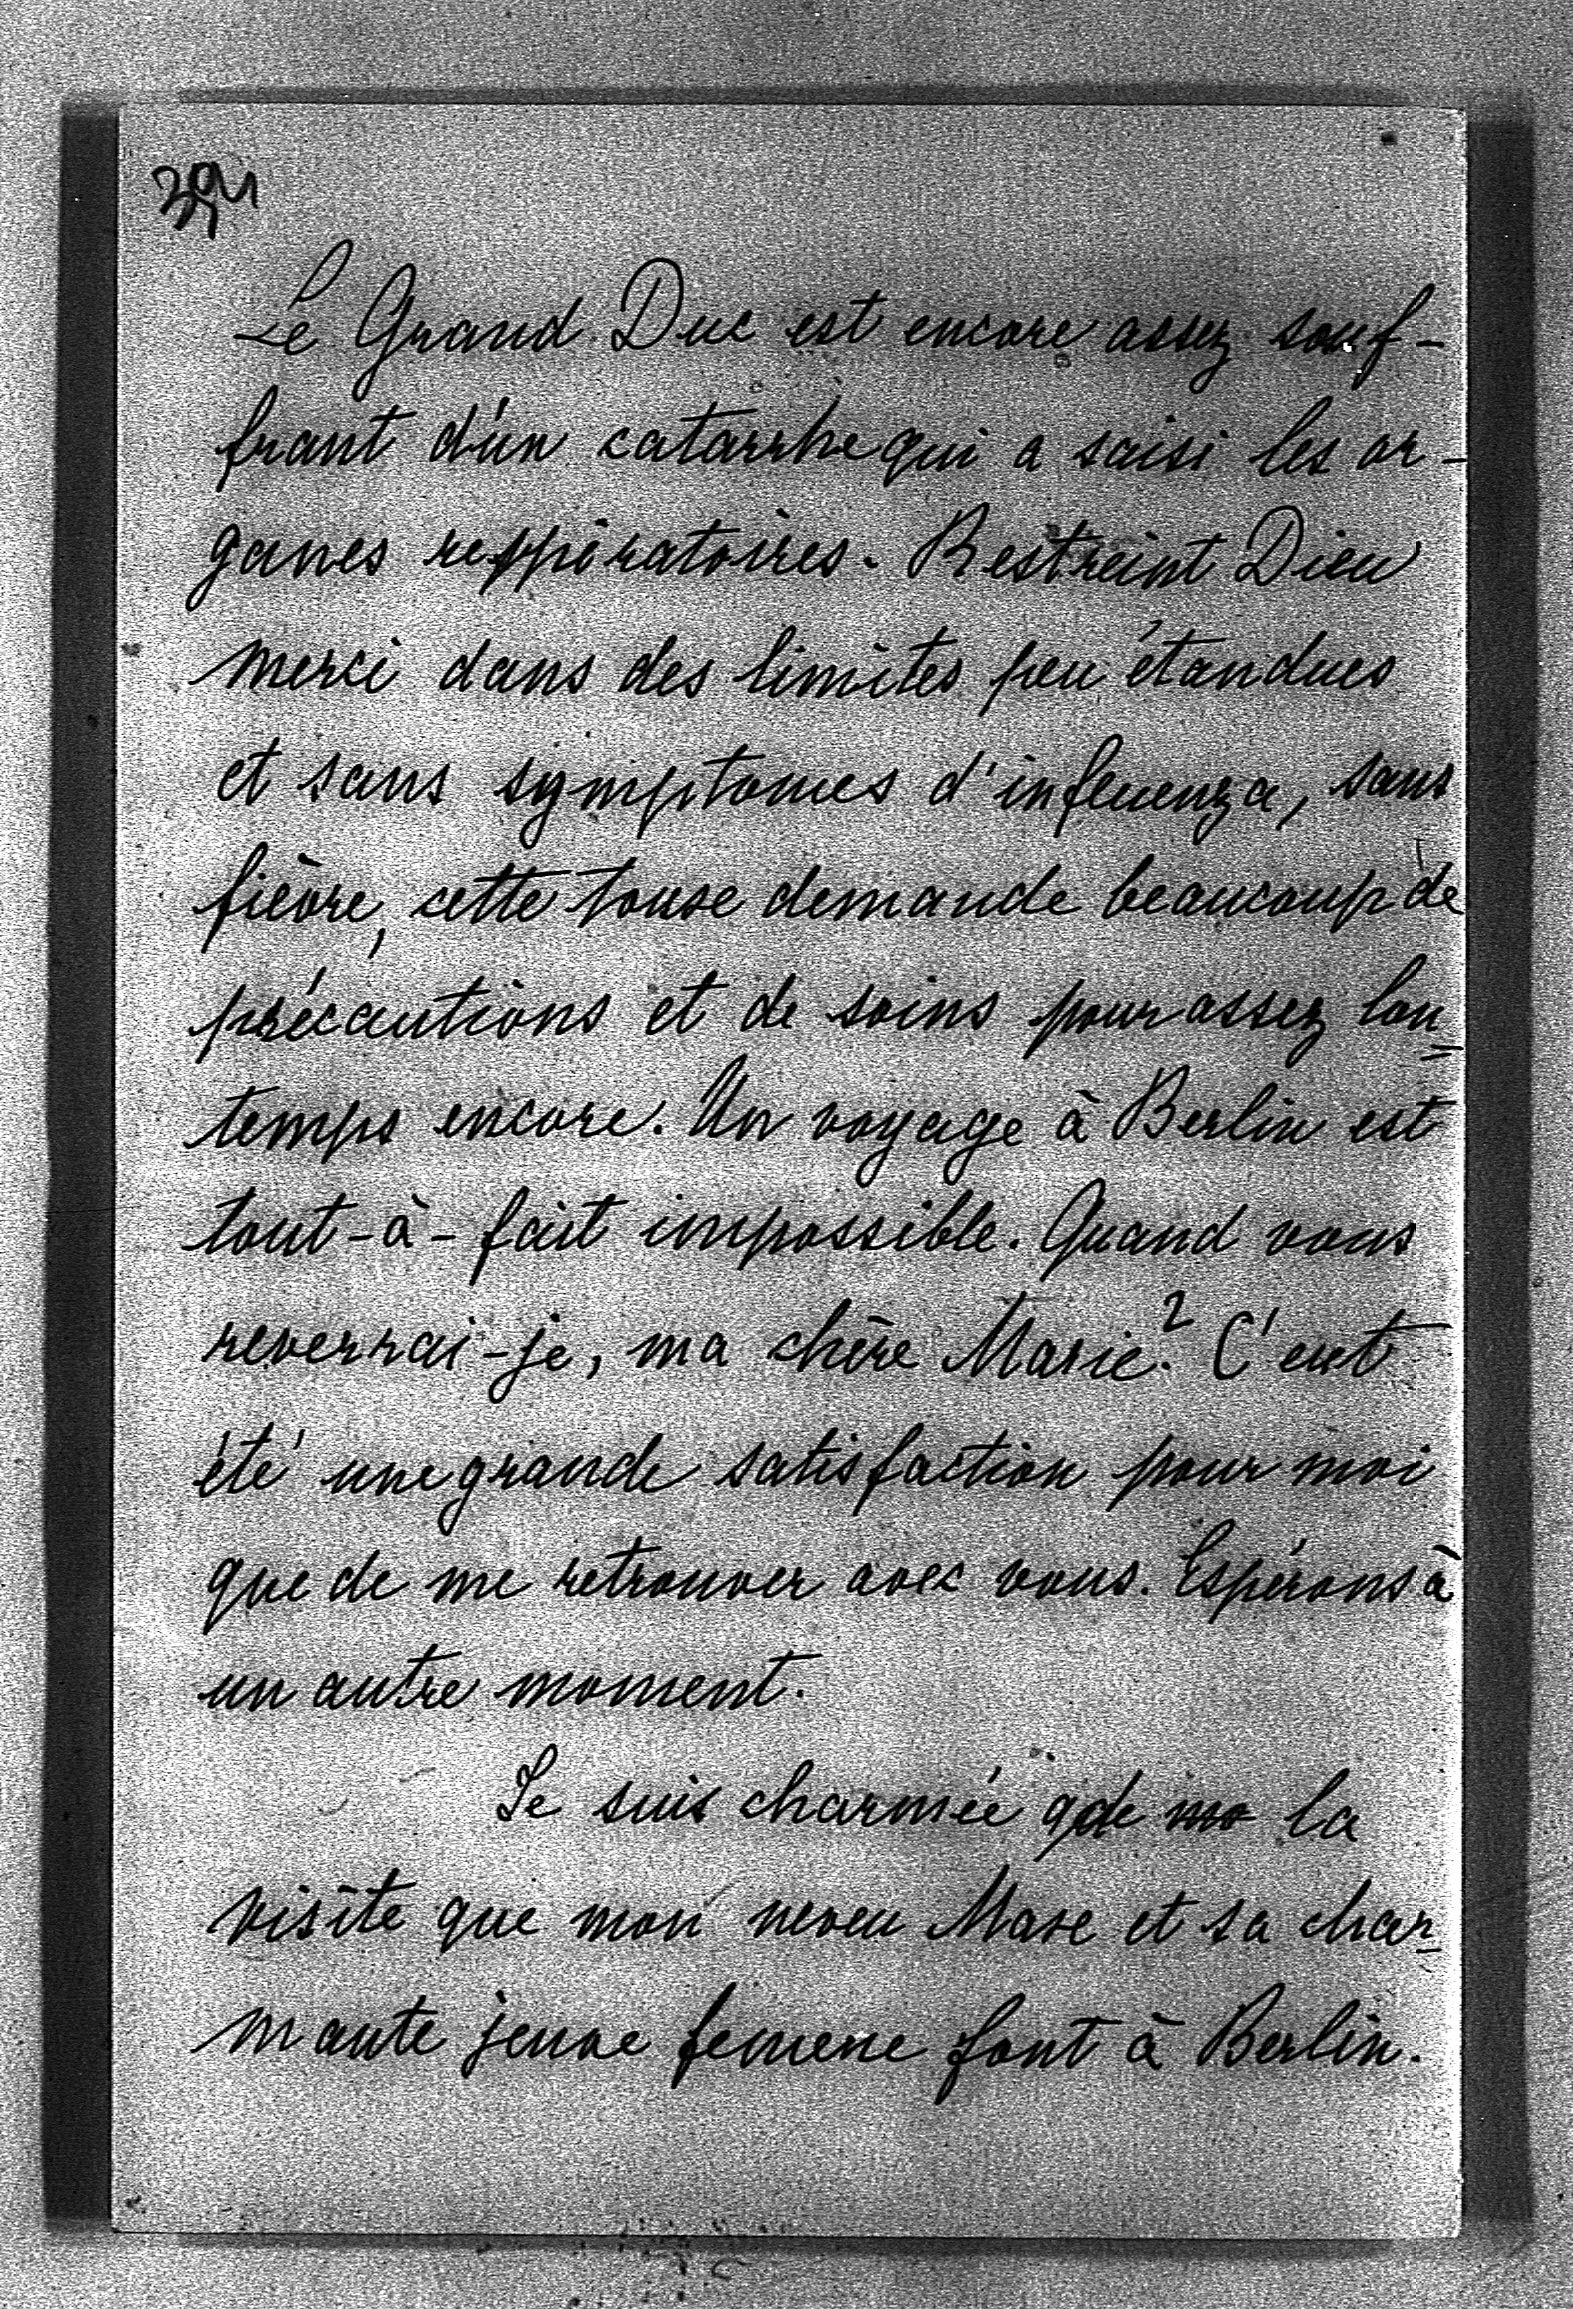 Le Grand Duc est encore assez souf-
frant d'un catarrhe qui a saisi les or-
ganes respiratoires. Restreint Dieu
merci dans des limites peu étandues
et sans symptomes d'influenza, sans
fièvre, cette touse demande beaucoup de
précautions et de soins pour assez lon=
temps encore. Un voyage à Berlin est
tout-à-fait impossible. Quand vous
reverrai-je, ma chère Marie? C'eut
été une grande satisfaction pour moi
que de me retrouver avec vous. Espérons à
un autre moment.
Je suis charmée de la
visite que mon neveu Maxe et sa char=
mante jeune femme font à Berlin.